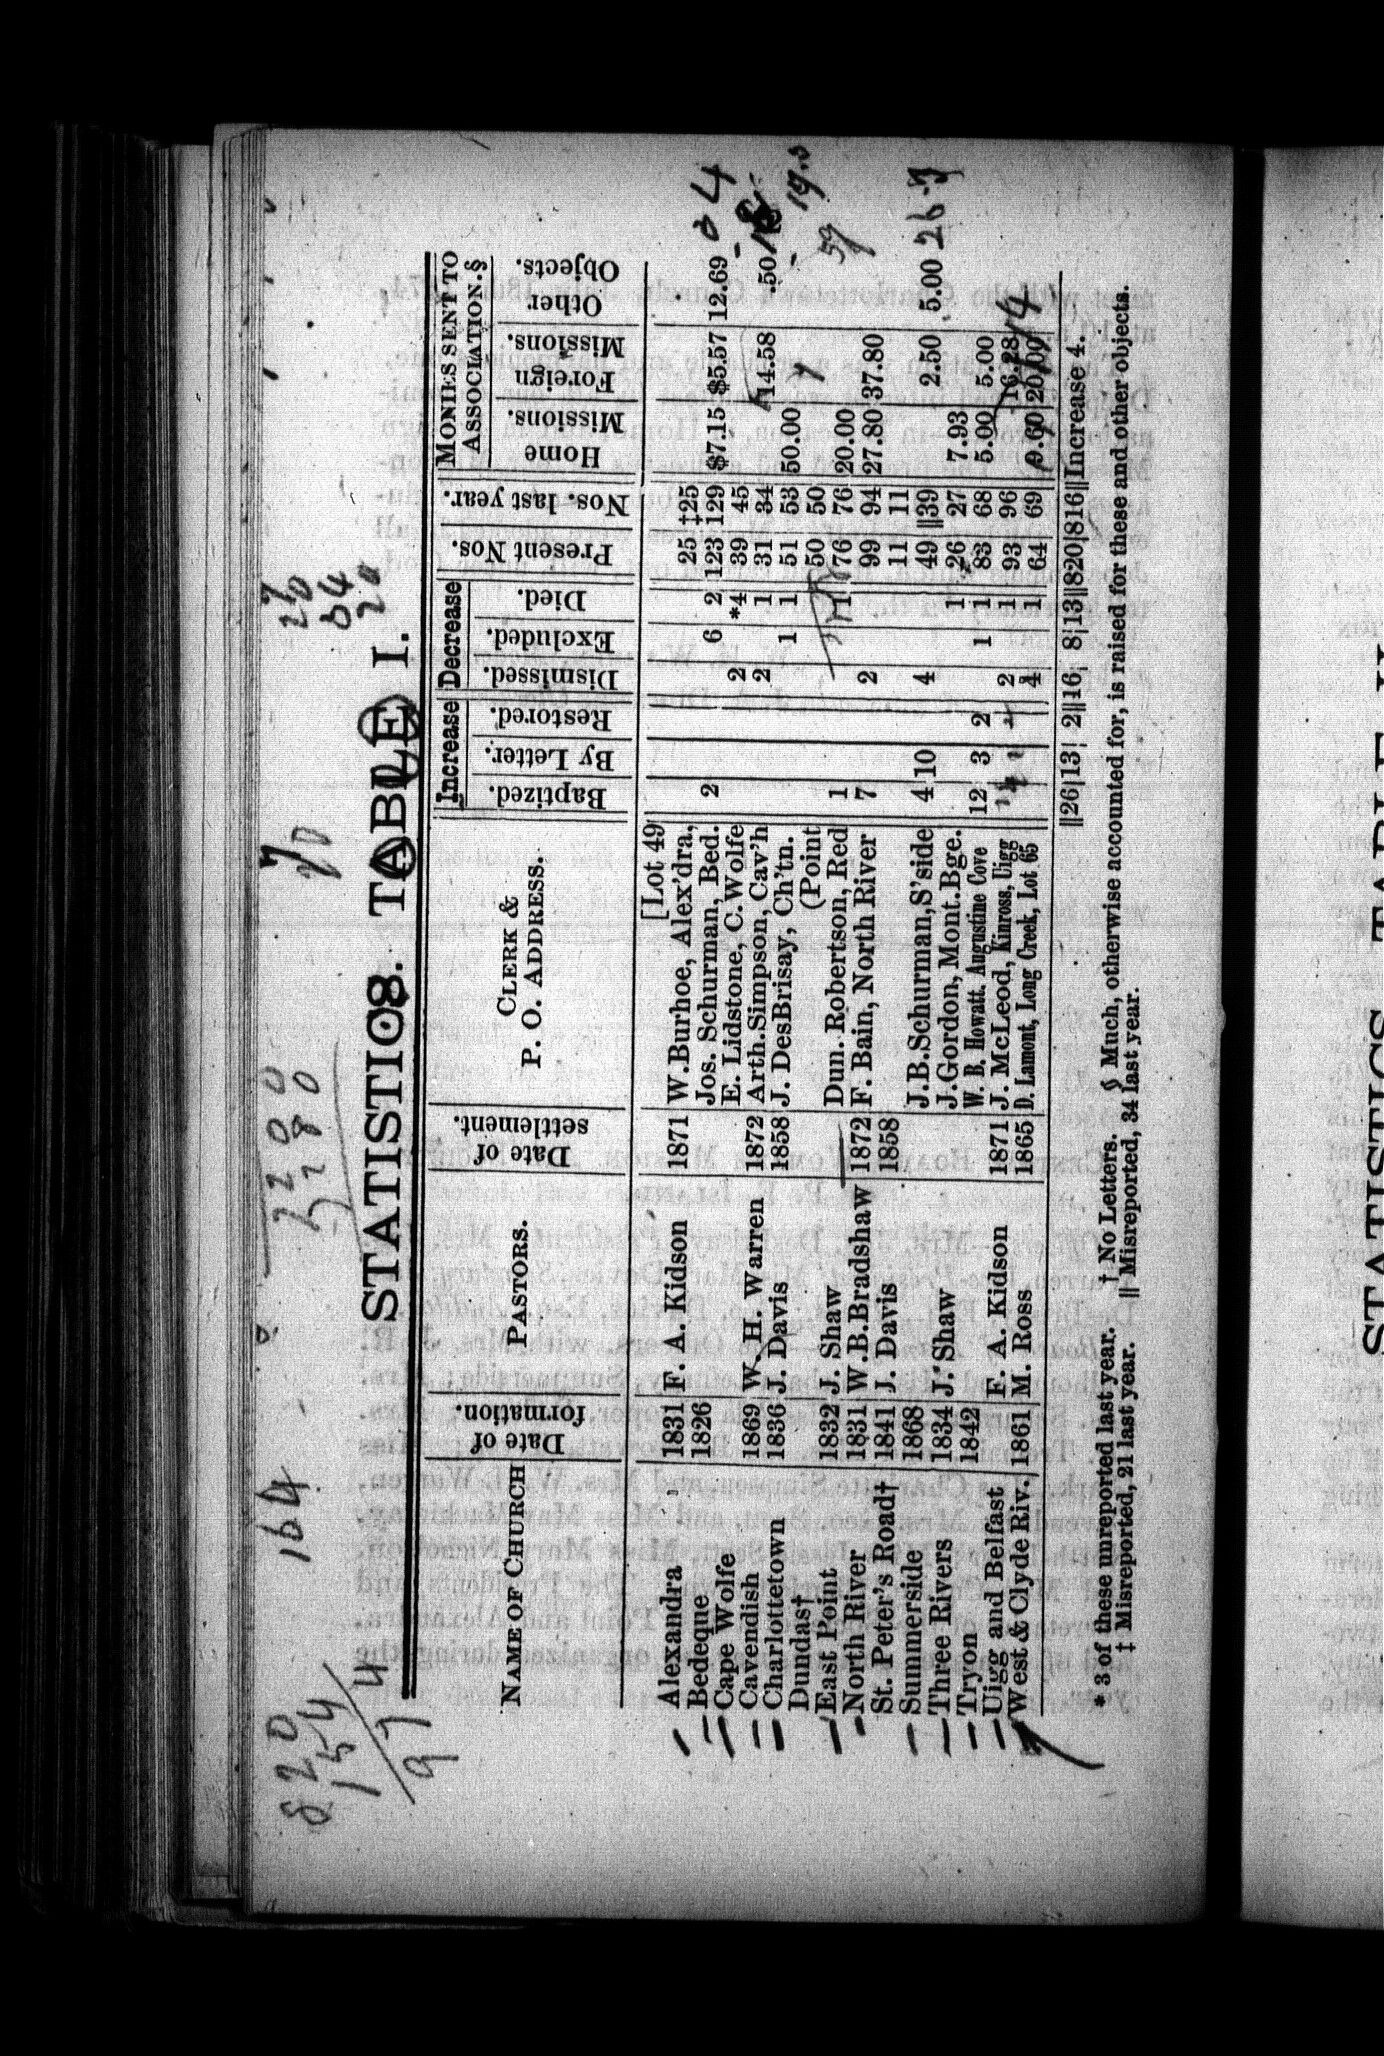 820
154
974
164
7200
3280
70
20
34
20
STATISTICS. TABLE I.
NAME OF CHURCH | Date of formation. | PASTORS. | Date of settlement. | CLERK & P. O. ADDRESS. | Increase: Baptized. | By Letter. | Restored. | Decrease: Dismissed. | Excluded. | Died. | Present Nos. | Nos. last year. | MONIES SENT TO ASSOCIATION.§ Home Missions. | Foreign Missions. | Other Objects.
[Lot 49
Alexandra 1831 F. A. Kidson 1871 W. Burhoe, Alex'dra, 25 ‡25
Bedeque 1826 Jos. Schurman, Bed. 2 6 2 123 129 $7.15 $5.57 12.69
Cape Wolfe E. Lidstone, C. Wolfe 2 *4 39 45
Cavendish 1869 W. H. Warren 1872 Arth. Simpson, Cav'h 2 1 31 34 14.58 .50
Charlottetown 1836 J. Davis 1858 J. DesBrisay, Ch'tn. 1 1 51 53 50.00
Dundas† (Point 50 50
East Point 1832 J. Shaw Dun. Robertson, Red 1 1 76 76 20.00
North River 1831 W. B. Bradshaw 1872 F. Bain, North River 7 2 99 94 27.80 37.80
St. Peter's Road† 1841 J. Davis 1858 11 11
Summerside 1868 J. B. Schurman, S'side 4 10 4 49 ||39 2.50 5.00
Three Rivers 1834 J. Shaw J. Gordon, Mont. Bge. 1 26 27 7.93
Tryon 1842 W. B. Howatt. Augustine Cove 12 3 2 1 1 83 68 5.00 5.00
Uigg and Belfast F. A. Kidson 1871 J. McLeod, Kinross, Uigg 2 1 93 96 16.28
West & Clyde Riv. 1861 M. Ross 1865 D. Lamont, Long Creek, Lot 65 4 1 64 69 9.60 20.00
||26|13| 2||16| 8|13||820|816||Increase 4.
* 3 of these unreported last year. † No Letters. § Much, otherwise accounted for, is raised for these and other objects.
‡ Misreported, 21 last year. || Misreported, 34 last year.